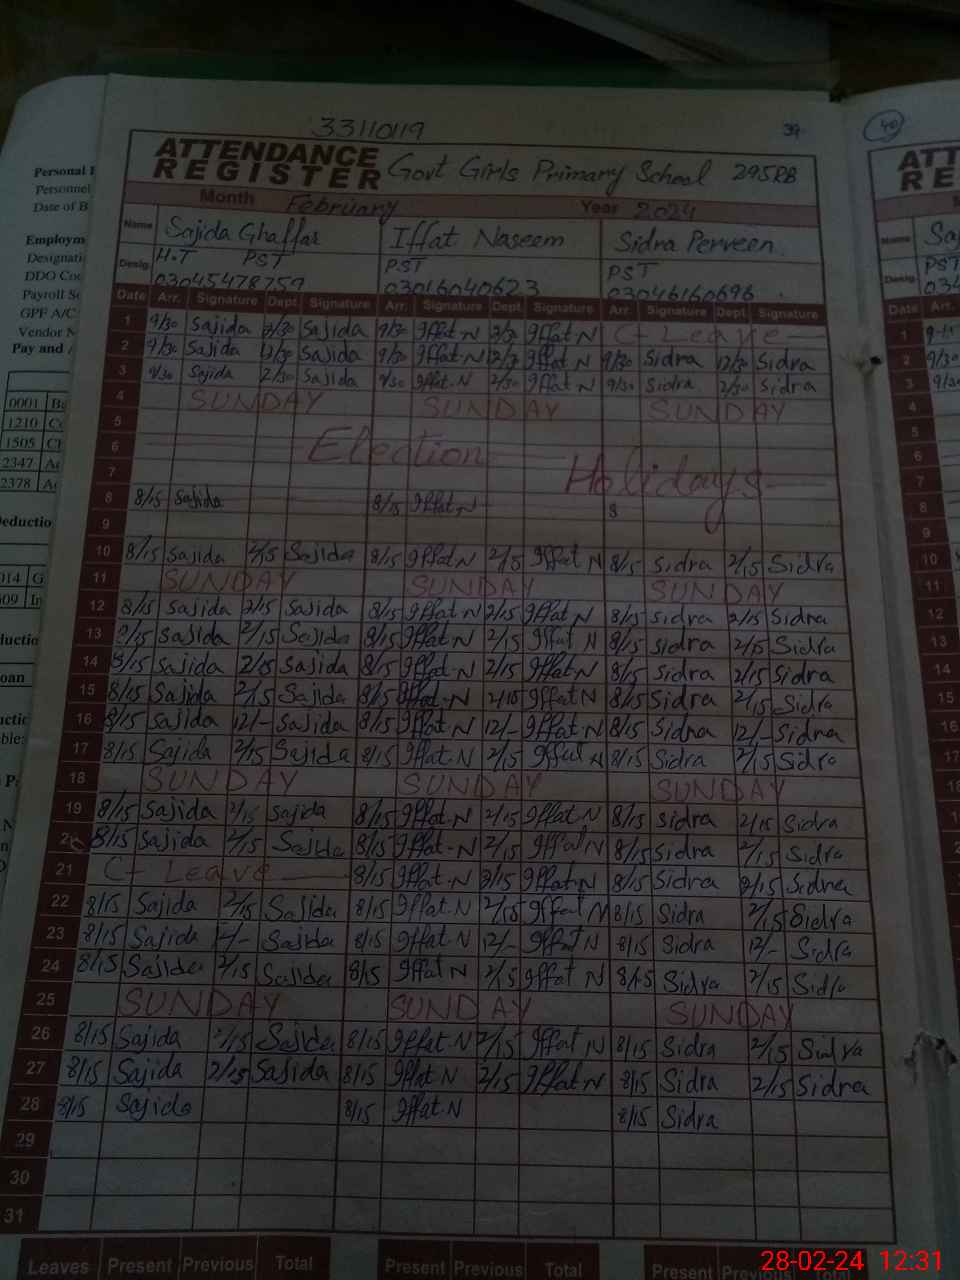 33110119
39
40
ATTENDANCE REGISTER Govt Girls Primary School 295RB
Month February Year 2024
Name Sajida Ghaffar Iffat Naseem Sidra Perveen
Desig. H.T PST PST PST
03045478759 03016040623 03046160696
Date Arr. Signature Dept Signature Arr. Signature Dept Signature Arr. Signature Dept Signature
1 9/30 Sajida 2/30 Sajida 9/30 Iffat-N 2/30 Iffat-N C- Leave
2 9/30 Sajida 12/30 Sajida 9/30 Iffat-N 12/30 Iffat N 9/30 Sidra 12/30 Sidra
3 9/30 Sajida 2/30 Sajida 9/30 Iffat-N 2/30 Iffat N 9/30 Sidra 2/30 Sidra
4 SUNDAY SUNDAY SUNDAY
5
6 Election
7 Holidays
8 8/15 Sajida 8/15 Iffat-N 8
9
10 8/15 Sajida 2/15 Sajida 8/15 Iffat-N 2/15 Iffat N 8/15 Sidra 2/15 Sidra
11 SUNDAY SUNDAY SUNDAY
12 8/15 Sajida 2/15 Sajida 8/15 Iffat-N 2/15 Iffat-N 8/15 Sidra 2/15 Sidra
13 8/15 Sajida 2/15 Sajida 8/15 Iffat-N 2/15 Iffat N 8/15 Sidra 2/15 Sidra
14 8/15 Sajida 2/15 Sajida 8/15 Iffat-N 2/15 Iffat-N 8/15 Sidra 2/15 Sidra
15 8/15 Sajida 2/15 Sajida 8/15 Iffat-N 2/15 Iffat N 8/15 Sidra 2/15 Sidra
16 8/15 Sajida 12/- Sajida 8/15 Iffat-N 12/- Iffat-N 8/15 Sidra 12/- Sidra
17 8/15 Sajida 2/15 Sajida 8/15 Iffat-N 2/15 Iffat N 8/15 Sidra 2/15 Sidra
18 SUNDAY SUNDAY SUNDAY
19 8/15 Sajida 2/15 Sajida 8/15 Iffat-N 2/15 Iffat-N 8/15 Sidra 2/15 Sidra
20 8/15 Sajida 2/15 Sajida 8/15 Iffat-N 2/15 Iffat N 8/15 Sidra 2/15 Sidra
21 C- Leave 8/15 Iffat-N 2/15 Iffat-N 8/15 Sidra 2/15 Sidra
22 8/15 Sajida 2/15 Sajida 8/15 Iffat-N 2/15 Iffat N 8/15 Sidra 2/15 Sidra
23 8/15 Sajida 12/- Sajida 8/15 Iffat-N 12/- Iffat N 8/15 Sidra 12/- Sidra
24 8/15 Sajida 2/15 Sajida 8/15 Iffat N 2/15 Iffat N 8/15 Sidra 2/15 Sidra
25 SUNDAY SUNDAY SUNDAY
26 8/15 Sajida 2/15 Sajida 8/15 Iffat-N 2/15 Iffat N 8/15 Sidra 2/15 Sidra
27 8/15 Sajida 2/15 Sajida 8/15 Iffat N 2/15 Iffat-N 8/15 Sidra 2/15 Sidra
28 8/15 Sajida 8/15 Iffat-N 8/15 Sidra
29
30
31
Leaves Present Previous Total Present Previous Total Present Previous Total
28-02-24 12:31